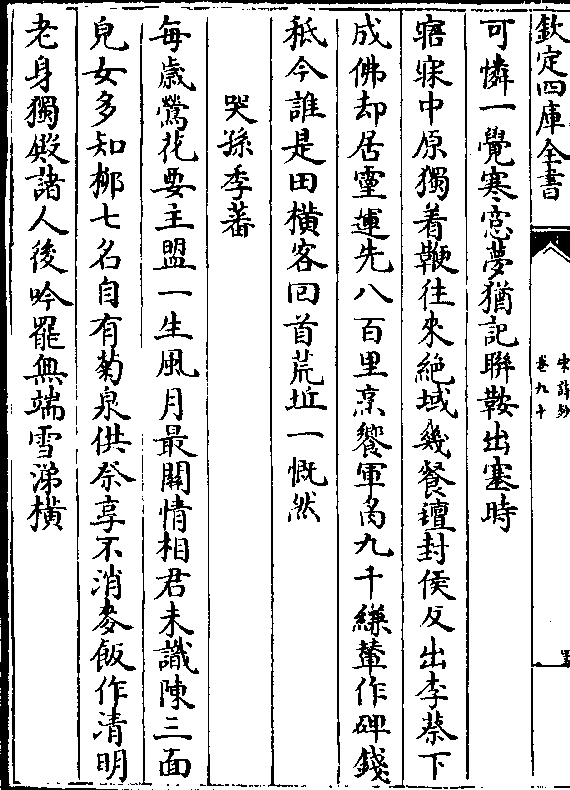 欽定四庫全書
宋詩鈔
卷九十
可憐一覺寒窓夢猶記聨鞍出塞時
寤寐中原獨着鞭往來絶域幾餐氊封侯反出李蔡下
成佛却居靈運先八百里烹饗軍炙九千縑輦作碑錢
秪今誰是田横客回首荒丘一慨然
哭孫季蕃
毎歳鶯花要主盟一生風月最關情相君未識陳三面
兒女多知柳七名自有菊泉供祭享不消麥飯作清明
老身獨殿諸人後吟罷無端雪涕横